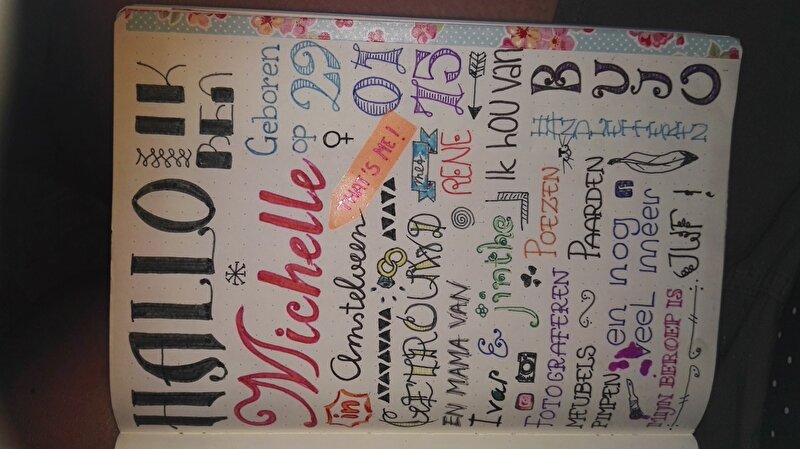 HALLO IK
BEN
Michelle
Geboren
op 29
01
75
in Amstelveen
THAT'S ME!
GETROUWD met
RENE
EN MAMA VAN
Ivar & Jinthe
Ik hou van
FOTOGRAFEREN POEZEN
BUJO
MEUBELS PAARDEN
PIMPEN
HANDLETTEREN
en nog
veel meer
MIJN BEROEP IS JUF!